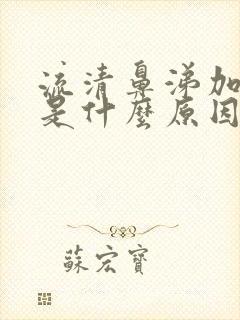 流清鼻涕加
是什麼原因
蘇宏寶